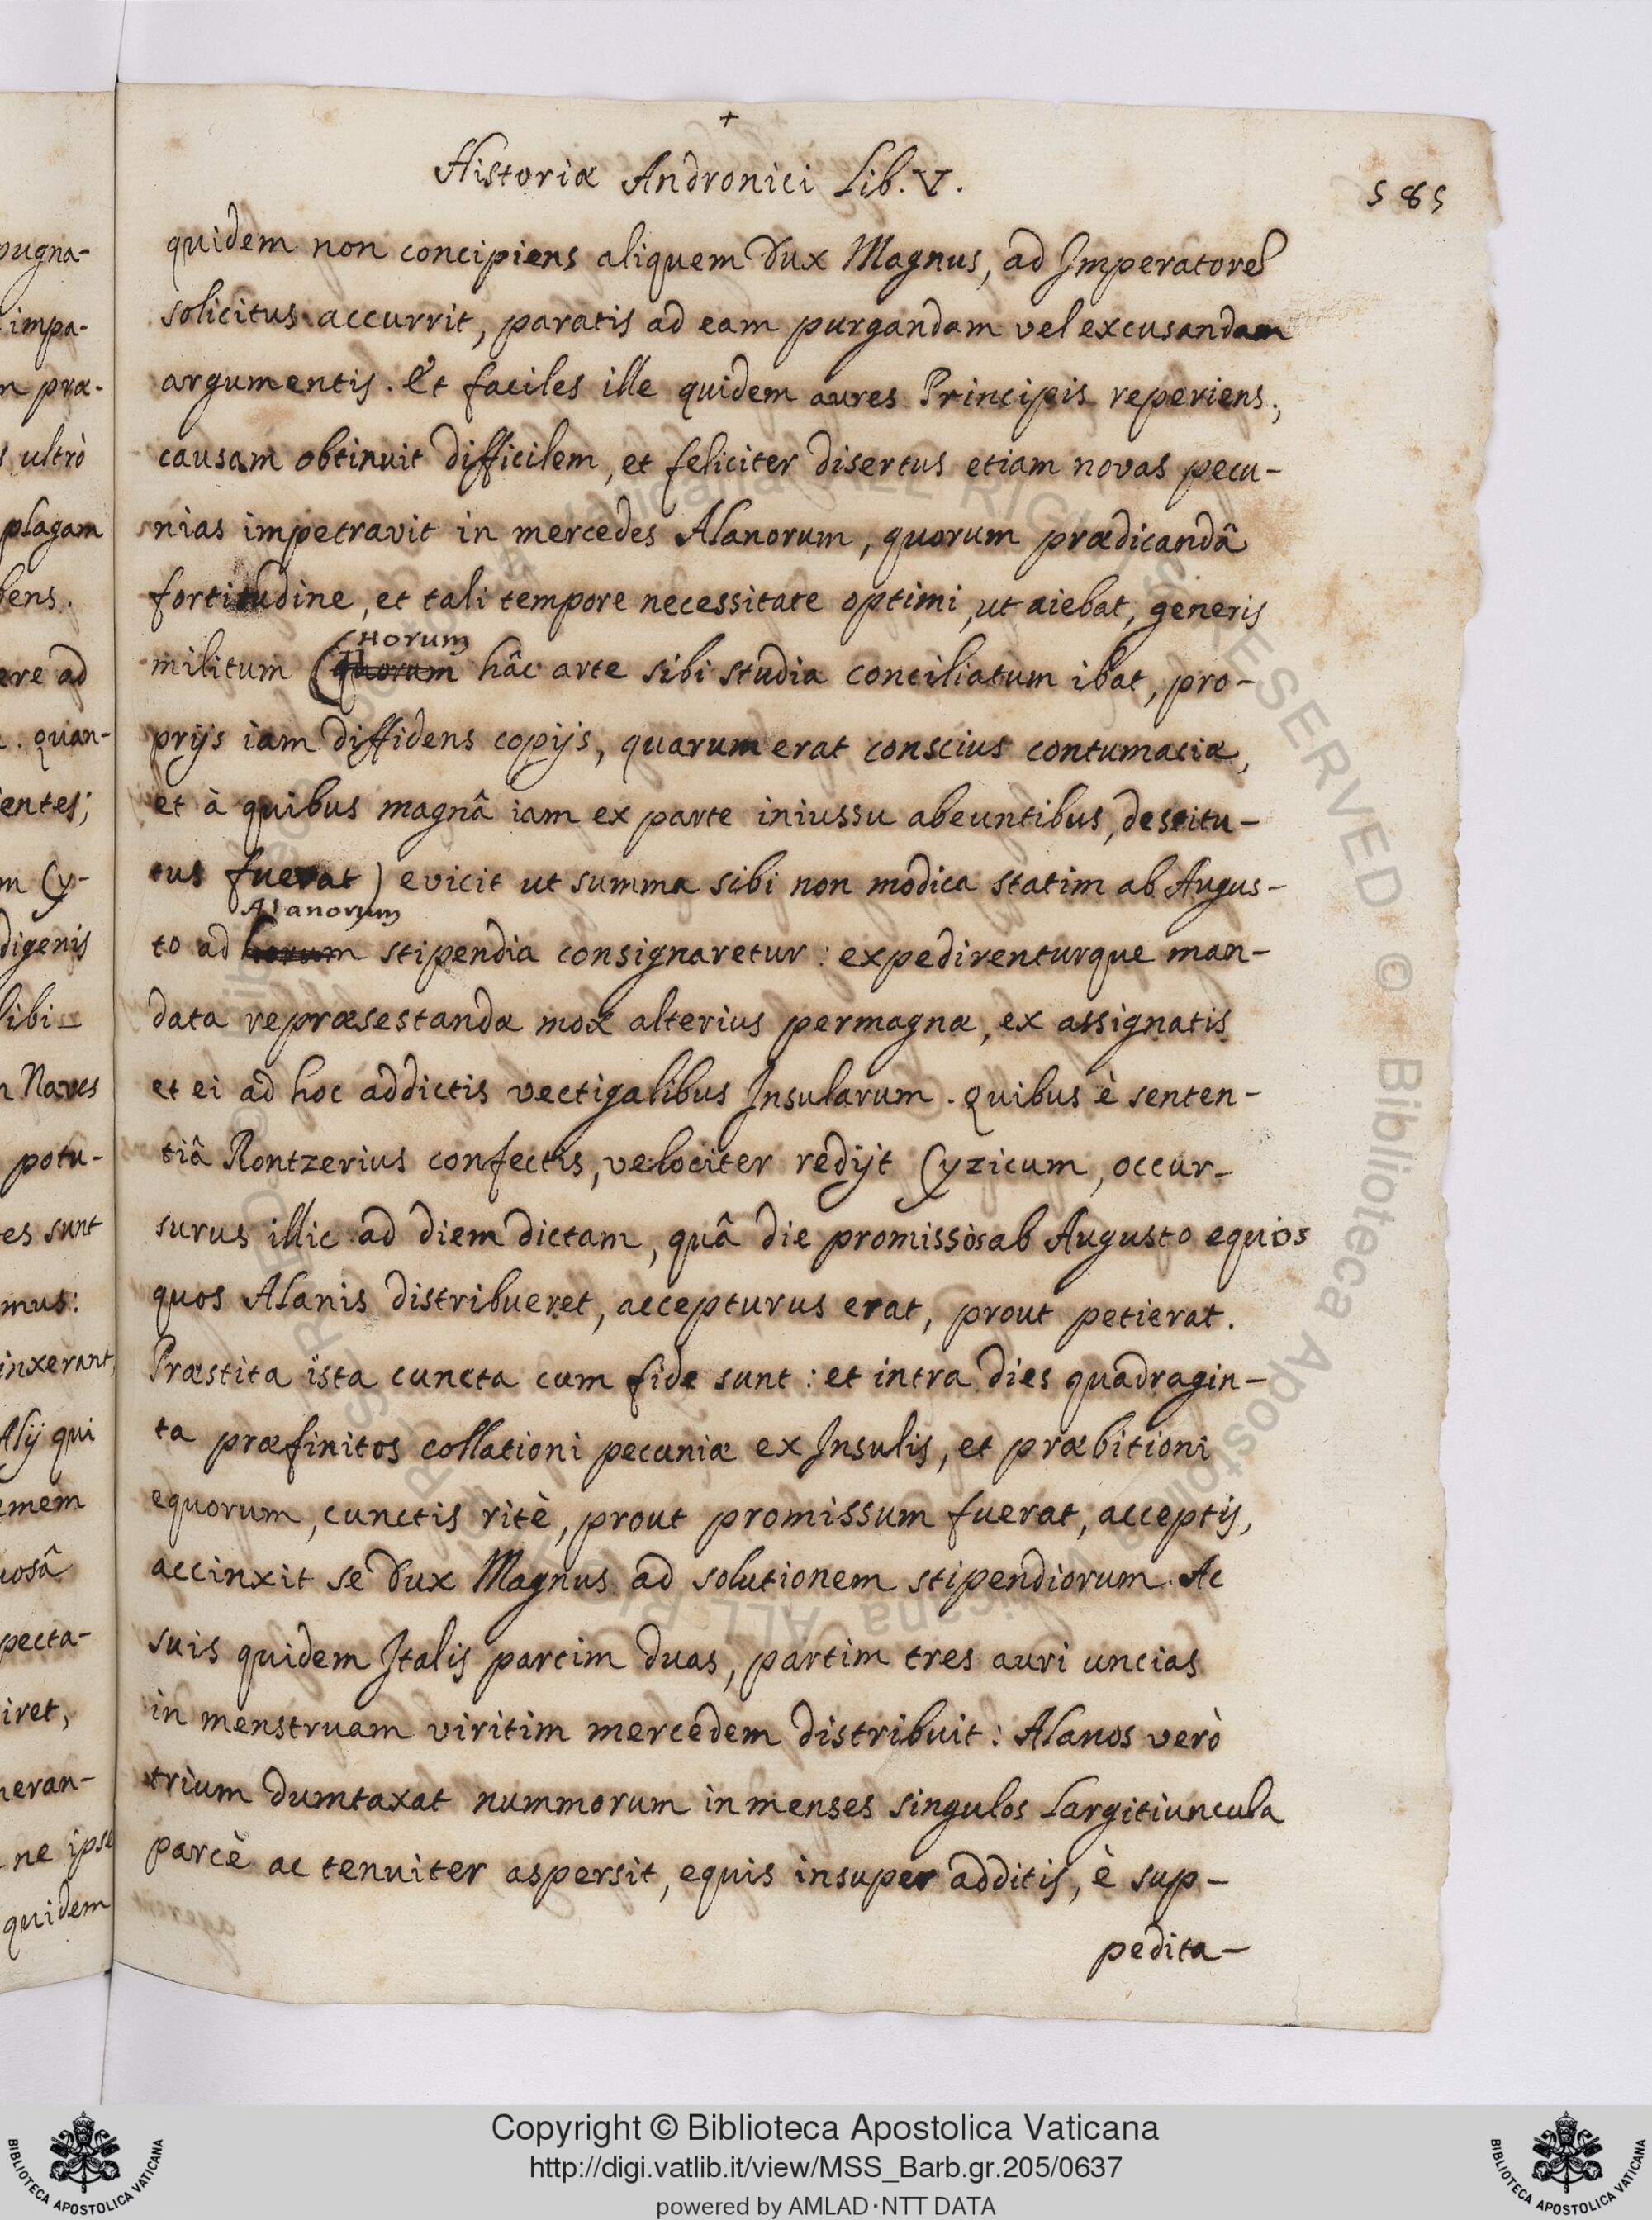 +
Historiæ Andronici Lib. V.
585
quidem non concipiens aliquem Dux Magnus, ad Imperatorē
solicitus accurrit, paratis ad eam purgandam vel excusandam
argumentis. Et faciles ille quidem aures Principis reperiens,
causam obtinuit difficilem, et feliciter disertus etiam novas pecu-
nias impetravit in mercedes Alanorum, quorum prædicandâ
fortitudine, et tali tempore necessitate optimi, ut aiebat, generis
(Horum
militum (quorum hâc arte sibi studia conciliatum ibat, pro-
prijs iam diffidens copijs, quarum erat conscius contumaciæ,
et à quibus magnâ iam ex parte iniussu abeuntibus, destitu-
tus fuerat) evicit ut summa sibi non modica statim ab Augus-
Alanorum
to ad horum stipendia consignaretur: expedirenturque man-
data repræsestandæ mox alterius permagnæ, ex assignatis
et ei ad hoc addictis vectigalibus Insularum. Quibus è senten-
tiâ Rontzerius confectis, velociter redijt Cyzicum, occur-
surus illic ad diem dictam, quâ die promissos ab Augusto equos
quos Alanis distribueret, accepturus erat, prout petierat.
Præstita ista cuncta cum fide sunt: et intra dies quadragin-
ta præfinitos collationi pecuniæ ex Insulis, et præbitioni
equorum, cunctis ritè, prout promissum fuerat, acceptis,
accinxit se Dux Magnus ad solutionem stipendiorum. Ac
suis quidem Italis partim duas, partim tres auri uncias
in menstruam viritim mercedem distribuit: Alanos verò
trium dumtaxat nummorum in menses singulos largitiuncula
parcè ac tenuiter aspersit, equis insuper additis, è sup-
pedita-
pugna-
impa-
præ-
ultrò
plagam
bens.
ere ad
quan-
entes;
m Cy-
digenis
libi-
Naves
potu-
es sunt
mus:
inxerant,
Alij qui
emem
uosâ
pecta-
iret,
neran-
ne ipse
quidem
Copyright © Biblioteca Apostolica Vaticana
http://digi.vatlib.it/view/MSS_Barb.gr.205/0637
powered by AMLAD·NTT DATA
BIBLIOTECA APOSTOLICA VATICANA
BIBLIOTECA APOSTOLICA VATICANA